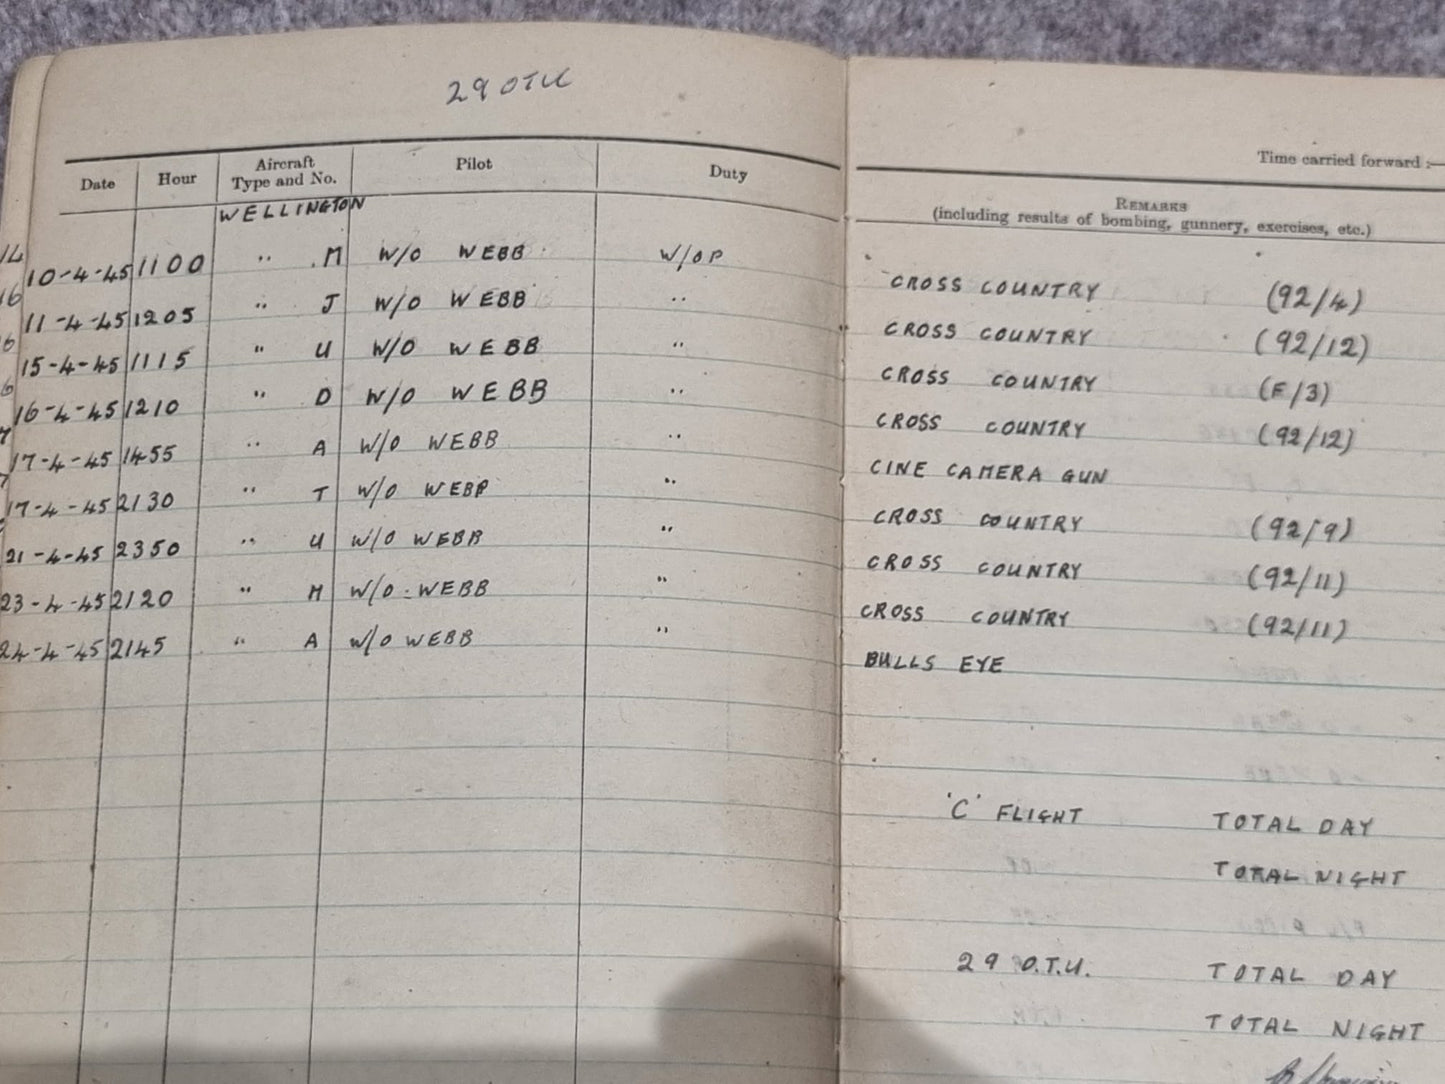 29 OTU
Time carried forward :—
Date Hour Aircraft Type and No. Pilot Duty
REMARKS
(including results of bombing, gunnery, exercises, etc.)
WELLINGTON
14 10-4-45 1100 " M W/O WEBB W/OP CROSS COUNTRY (92/4)
16 11-4-45 1205 " J W/O WEBB " CROSS COUNTRY (92/12)
6 15-4-45 1115 " U W/O WEBB " CROSS COUNTRY (F/3)
6 16-4-45 1210 " D W/O WEBB " CROSS COUNTRY (92/12)
7 17-4-45 1455 " A W/O WEBB " CINE CAMERA GUN
7 17-4-45 2130 " T W/O WEBB " CROSS COUNTRY (92/9)
21-4-45 2350 " U W/O WEBB " CROSS COUNTRY (92/11)
23-4-45 2120 " M W/O WEBB " CROSS COUNTRY (92/11)
24-4-45 2145 " A W/O WEBB " BULLS EYE
'C' FLIGHT TOTAL DAY
TOTAL NIGHT
29 O.T.U. TOTAL DAY
TOTAL NIGHT